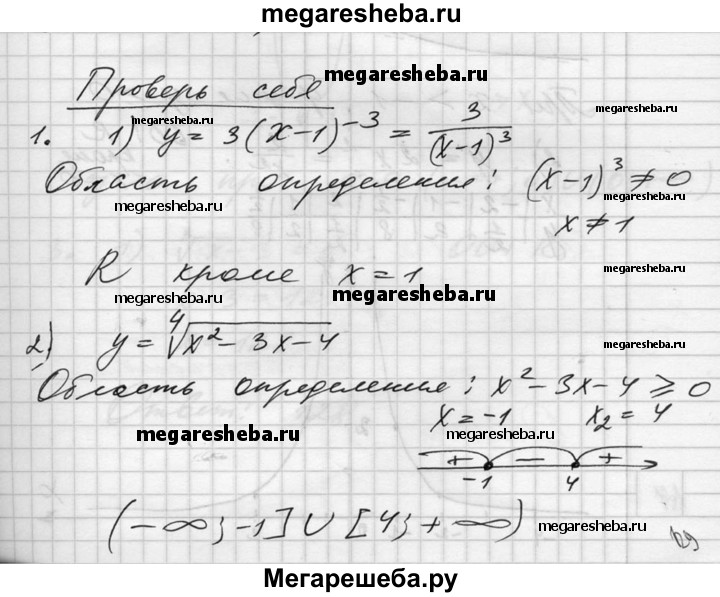 megaresheba.ru
Проверь себя megaresheba.ru
megaresheba.ru megaresheba.ru
1. 1) y = 3(x-1)^{-3} = \frac{3}{(x-1)^3}
Область определения: (x-1)^3 ≠ 0
megaresheba.ru megaresheba.ru
x ≠ 1
R кроме x = 1
megaresheba.ru
megaresheba.ru megaresheba.ru
2) y = \sqrt[4]{x^2-3x-4}
megaresheba.ru
Область определения: x^2-3x-4 ≥ 0
megaresheba.ru
x = -1 x_2 = 4
megaresheba.ru megaresheba.ru
+ - +
-1 4
(-∞; -1] ∪ [4; +∞)
megaresheba.ru
129
Мегарешеба.ру